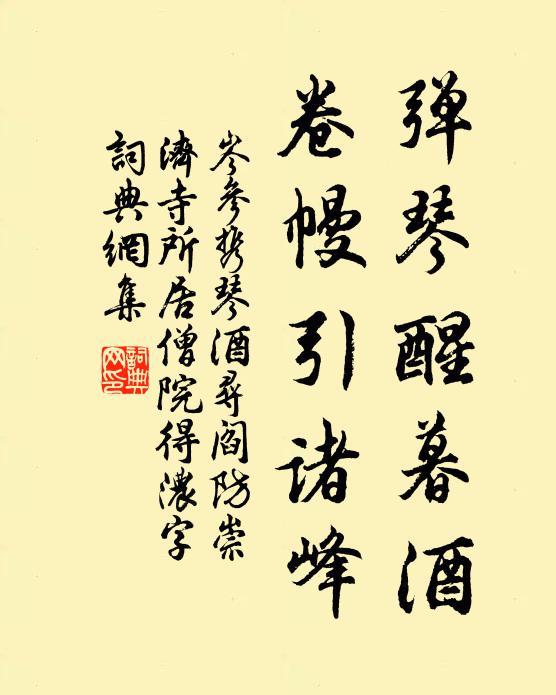 弹琴醒暮酒
卷幔引诸峰
岑参携琴酒寻阎防崇
济寺所居僧院得浓字
词典网集
词典网印